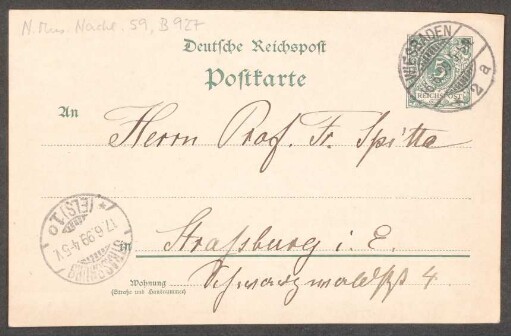 N. Mus. Nachl. 59, B 927
Deutsche Reichspost
Postkarte
WIESBADEN
2 a
5
REICHSPOST
An
Herrn Prof. Fr. Spitta
STRASSBURG
(ELS) 1.
17.6.99.4-5V.
in Straßburg i. E.
Wohnung Schwarzwaldstr. 4.
(Straße und Hausnummer)